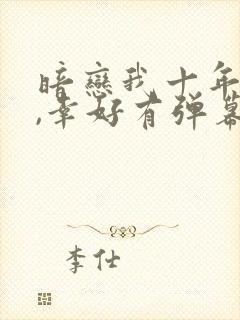 暗戀我十年
,幸好有弹幕
李仕